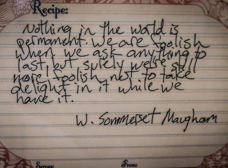 Recipe:
Nothing in the world is
permanent. We are foolish
when we ask anything to
last, but surely we're still
more foolish not to take
delight in it while we
have it.
W. Sommerset Maugham
From: